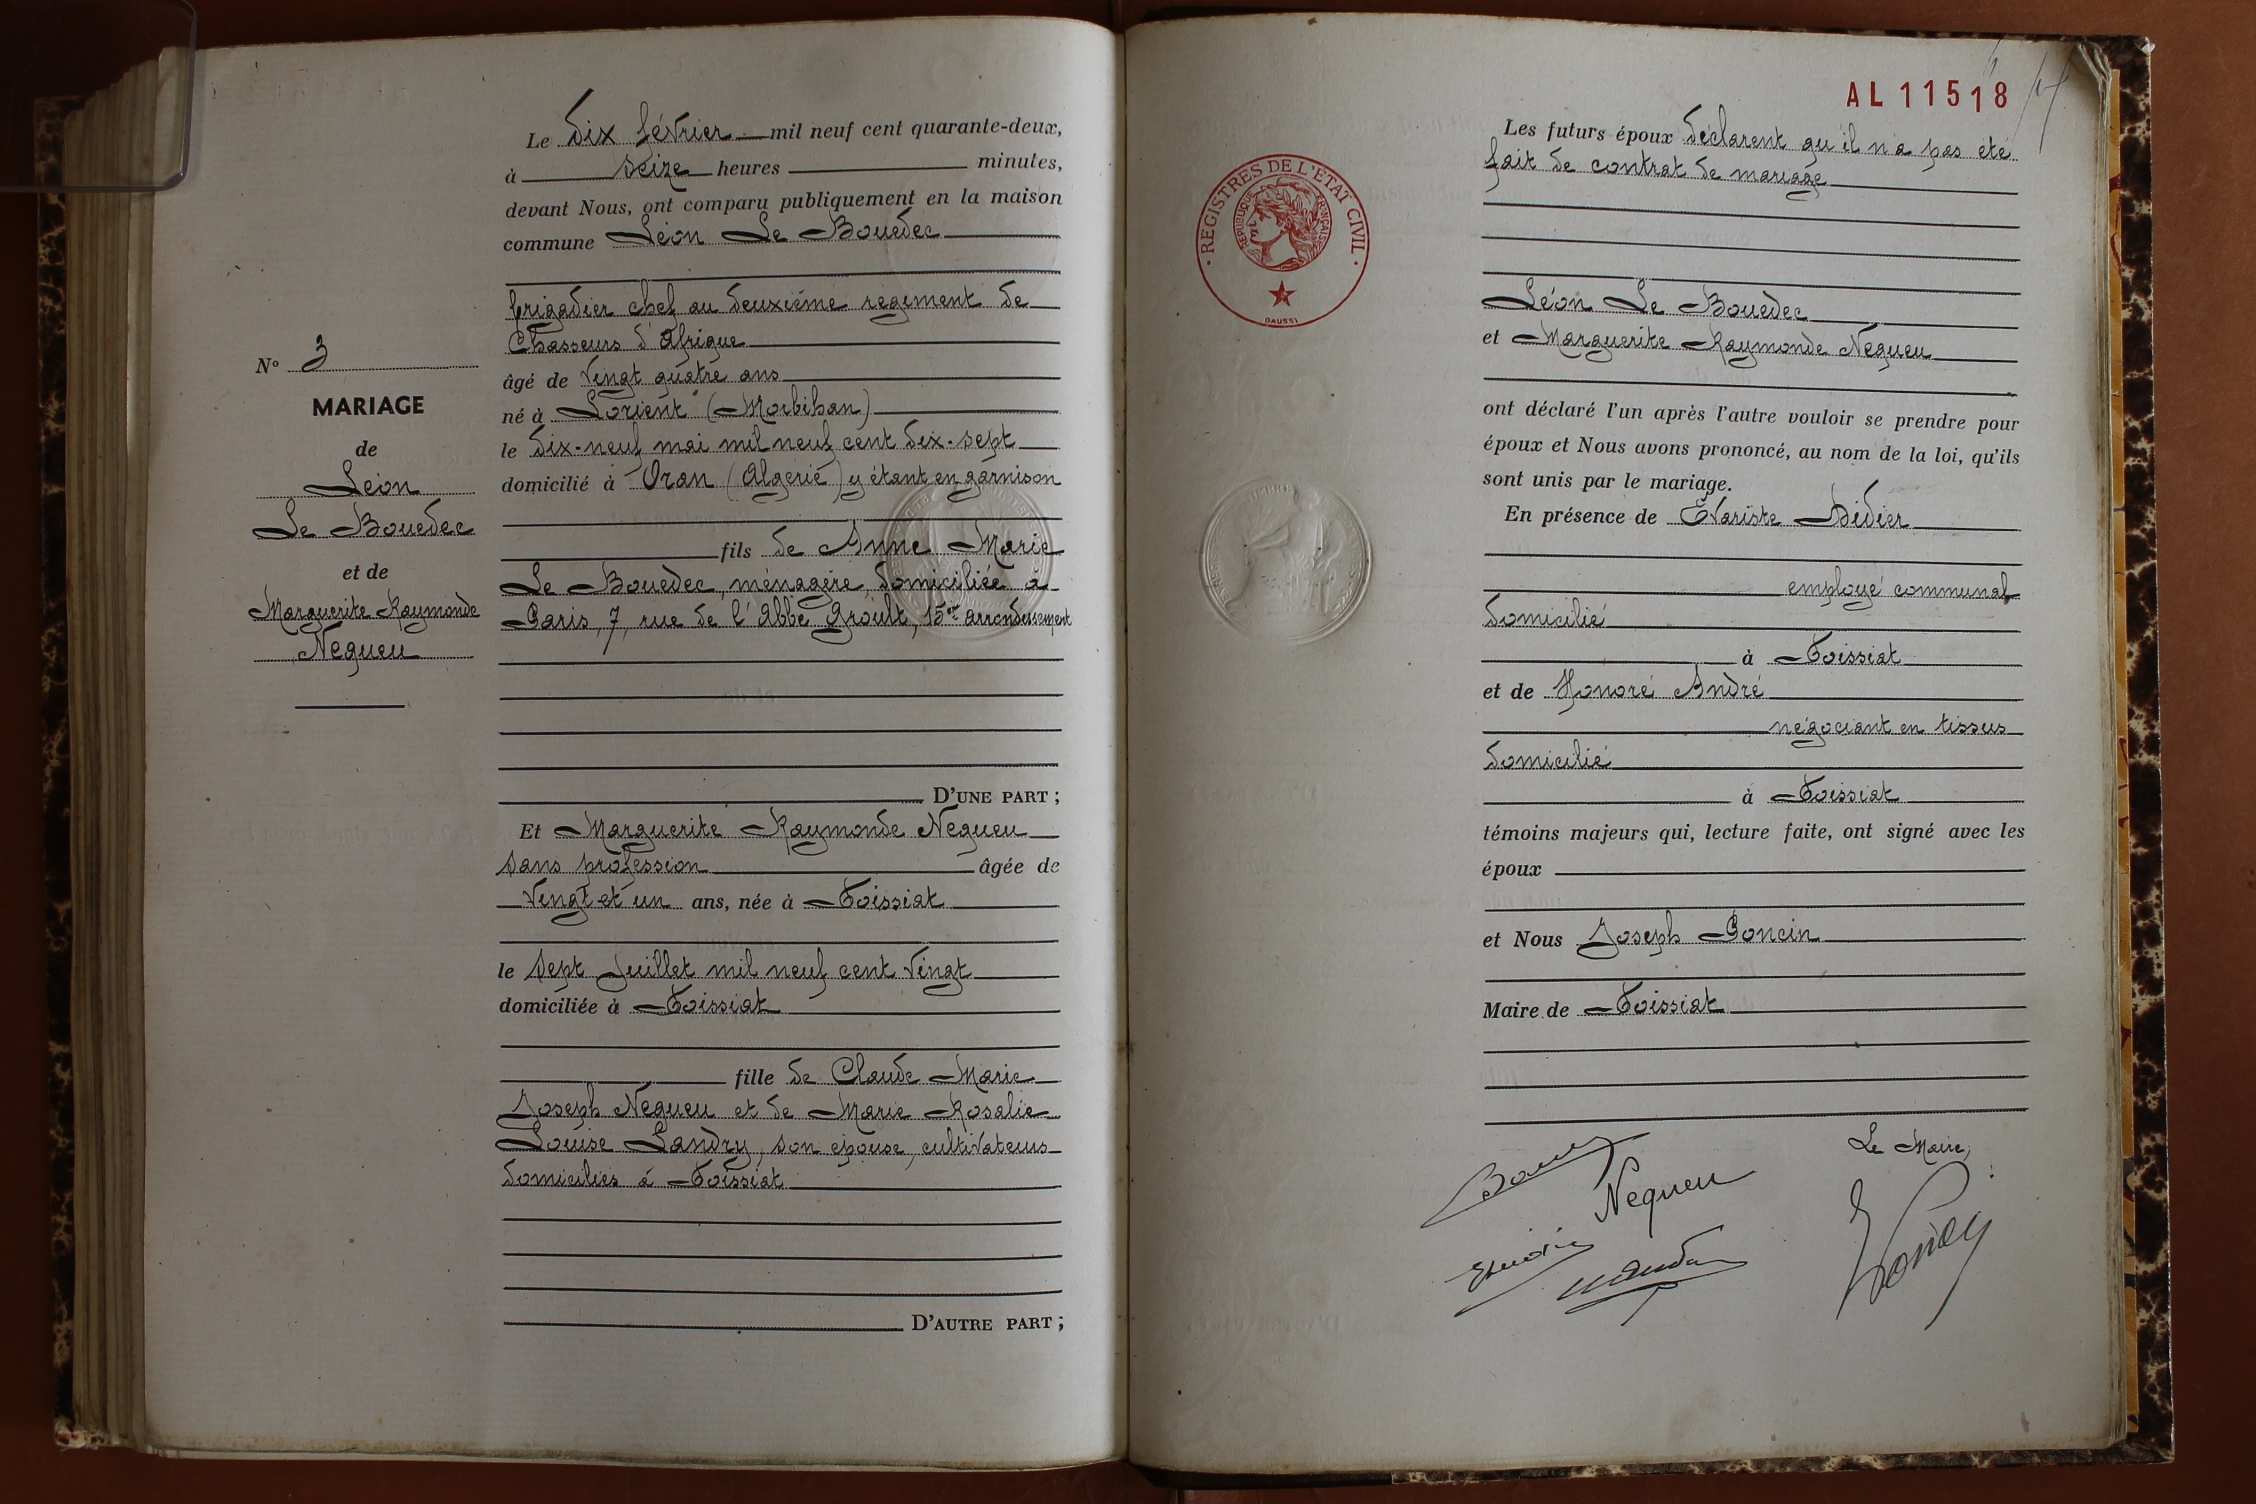 N° 3
MARIAGE
de
Léon
Le Bouedec
et de
Marguerite Raymonde
Negueu
Le dix février mil neuf cent quarante-deux,
à seize heures minutes,
devant Nous, ont comparu publiquement en la maison
commune Léon Le Bouedec
brigadier chef au deuxième regiment de
Chasseurs d'Afrique
âgé de vingt quatre ans
né à Lorient (Morbihan)
le dix-neuf mai mil neuf cent dix-sept
domicilié à Oran (Algerie) y étant en garnison
fils de Anne Marie
Le Bouedec, ménagère, domiciliée à
Paris, 7, rue de l'Abbé Groult, 15er arrondissement
D'UNE PART ;
Et Marguerite Raymonde Negueu
sans profession âgée de
vingt et un ans, née à Foissiat
le sept Juillet mil neuf cent vingt
domiciliée à Foissiat
fille de Claude Marie
Joseph Negueu et de Marie Rosalie
Louise Landry, son épouse, cultivateurs
domiciliés à Foissiat
D'AUTRE PART ;
AL 11518
REGISTRES DE L'ETAT CIVIL
REPUBLIQUE FRANÇAISE
DAUSSI
Les futurs époux déclarent qu'il n'a pas été
fait de contrat de mariage
Léon Le Bouedec
et Marguerite Raymonde Negueu
ont déclaré l'un après l'autre vouloir se prendre pour
époux et Nous avons prononcé, au nom de la loi, qu'ils
sont unis par le mariage.
En présence de Evariste Didier
employé communal
domicilié
à Foissiat
et de Honoré André
négociant en tissus
domicilié
à Foissiat
témoins majeurs qui, lecture faite, ont signé avec les
époux
et Nous Joseph Poncin
Maire de Foissiat
Le Maire,
Negueu